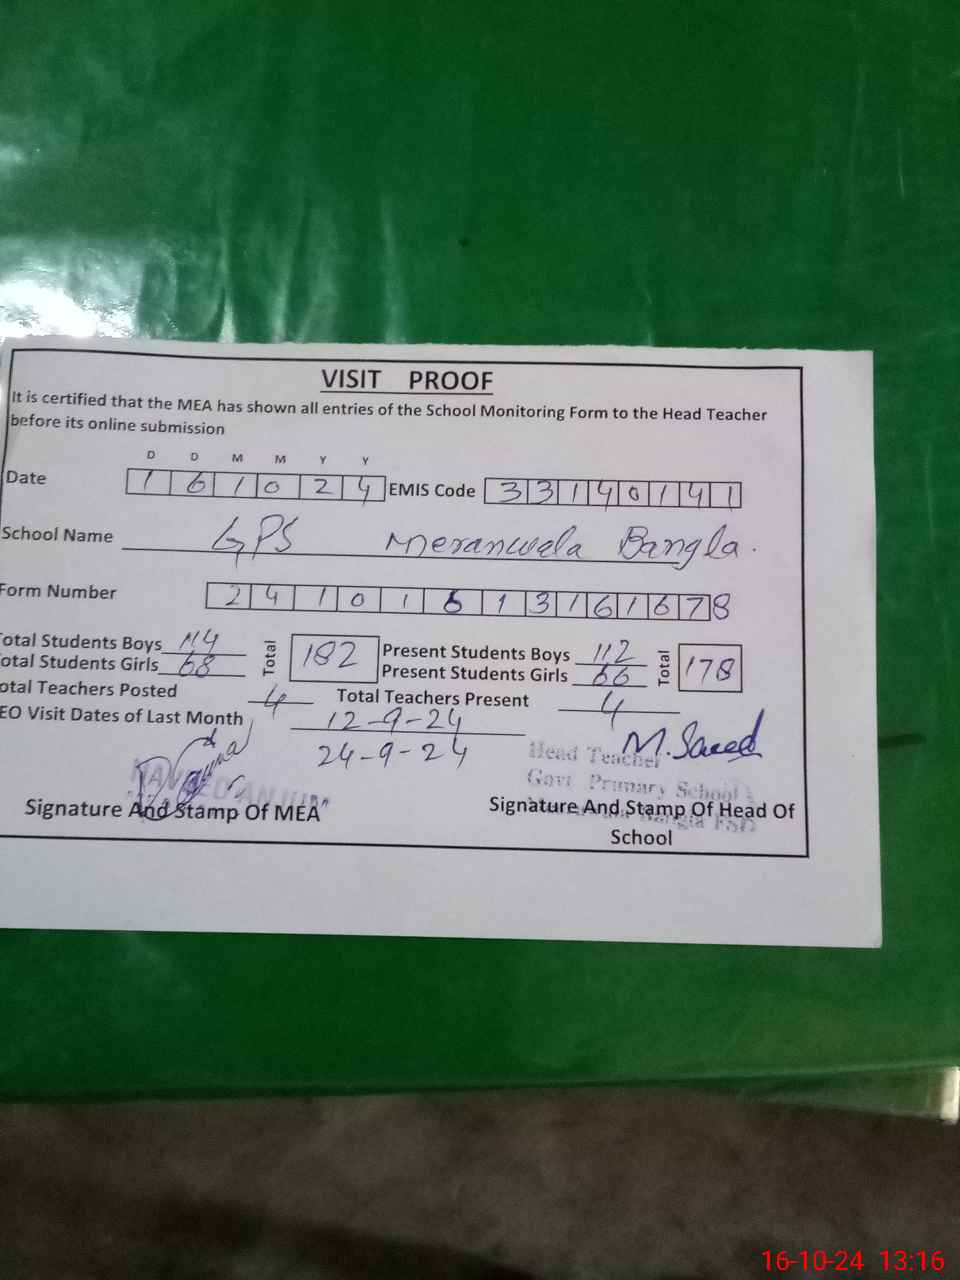 VISIT PROOF
It is certified that the MEA has shown all entries of the School Monitoring Form to the Head Teacher
before its online submission
D D M M Y Y
Date 1 6 1 0 2 4 EMIS Code 3 3 1 4 0 1 4 1
School Name GPS Meranwala Bangla.
Form Number 2 4 1 0 1 6 1 3 1 6 1 6 7 8
otal Students Boys 114 Total 182 Present Students Boys 112 Total 178
otal Students Girls 68 Present Students Girls 66
otal Teachers Posted 4 Total Teachers Present 4
EO Visit Dates of Last Month 12-9-24
24-9-24
M.Saeed
Head Teacher
Govt Primary School
NAVEED ANJUM
Signature And Stamp Of MEA
Signature And Stamp Of Head Of
Bangla FSD
School
16-10-24 13:16